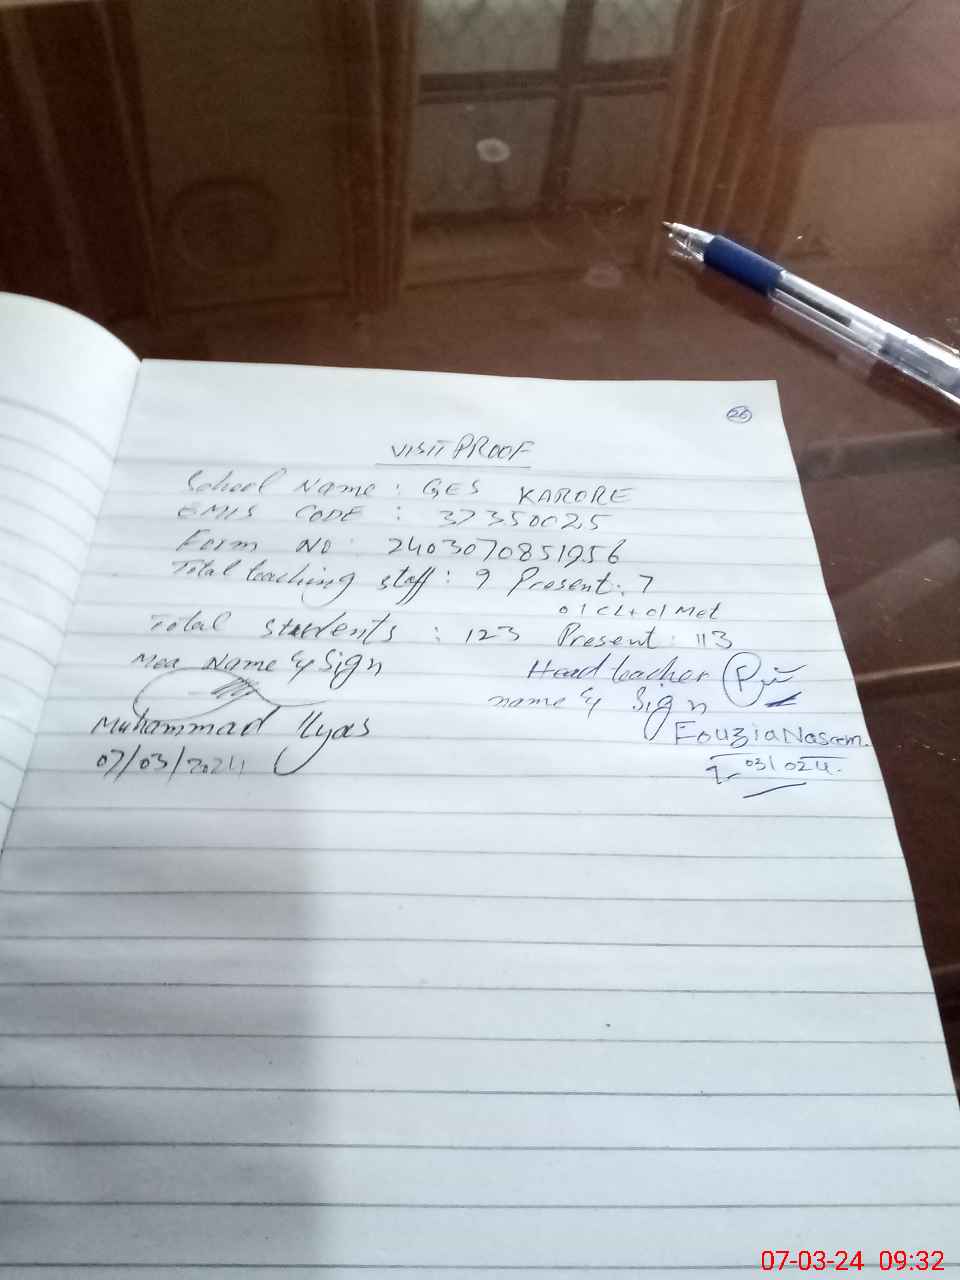 26
VISIT PROOF
School Name : GES KARORE
EMIS CODE : 37350025
Form No : 2403070851956
Total teaching staff : 9 Present : 7
01 CL + 01 Mat
Total students : 123 Present : 113
Mea Name & Sign
Head teacher
name & Sign
Muhammad Ilyas
07/03/2024
Fouzia Naseem.
7/03/024.
07-03-24 09:32